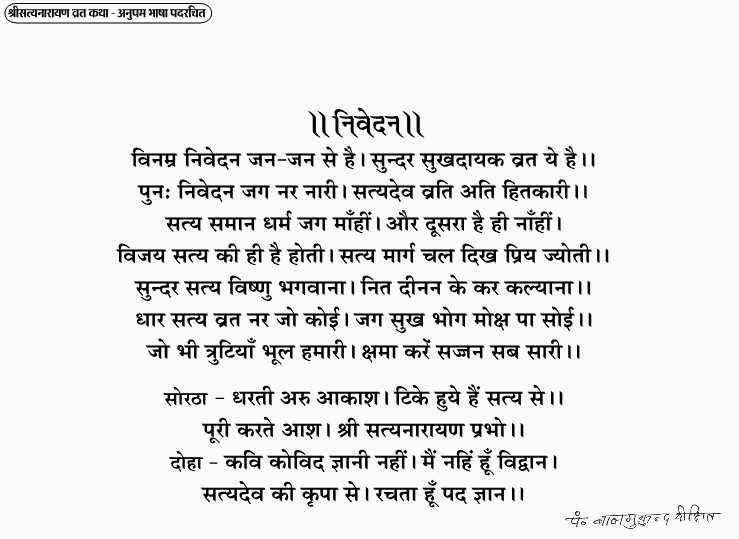 श्रीसत्यनारायण व्रत कथा - अनुपम भाषा पदरचित
॥ निवेदन॥
विनम्र निवेदन जन-जन से है। सुन्दर सुखदायक व्रत ये है।।
पुनः निवेदन जग नर नारी। सत्यदेव व्रति अति हितकारी।।
सत्य समान धर्म जग माँहीं। और दूसरा है ही नाँहीं।
विजय सत्य की ही है होती। सत्य मार्ग चल दिख प्रिय ज्योती।।
सुन्दर सत्य विष्णु भगवाना। नित दीनन के कर कल्याना।।
धार सत्य व्रत नर जो कोई। जग सुख भोग मोक्ष पा सोई।।
जो भी त्रुटियाँ भूल हमारी। क्षमा करें सज्जन सब सारी।।
सोरठा - धरती अरु आकाश। टिके हुये हैं सत्य से।।
पूरी करते आश। श्री सत्यनारायण प्रभो।।
दोहा - कवि कोविद ज्ञानी नहीं। मैं नहिं हूँ विद्वान।
सत्यदेव की कृपा से। रचता हूँ पद ज्ञान।।
पं॰ बालमुकुन्द दीक्षित